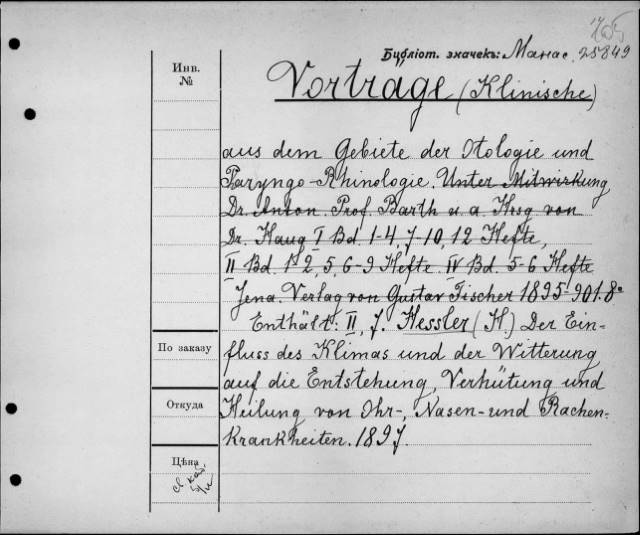 Библіот. значекъ: Манас. 25849
Инв.
№
Vorträge (Klinische)
aus dem Gebiete der Otologie und
Paryngo-Rhinologie. Unter Mitwirkung
Dr. Anton. Prof. Barth u. a. Hrsg von
Dr. Haug I Bd. 1-4, 7-10, 12 Hefte,
II Bd. 1-2, 5, 6-9 Hefte. IV Bd. 5-6 Hefte
Jena. Verlag von Gustav Fischer 1895-901. 8°
Enthält: II, 7. Hessler (H.) Der Ein-
По заказу
fluss des Klimas und der Witterung
auf die Entstehung, Verhütung und
Откуда
Heilung von Ohr-, Nasen- und Rachen-
krankheiten. 1897.
Цѣна
св. кат.